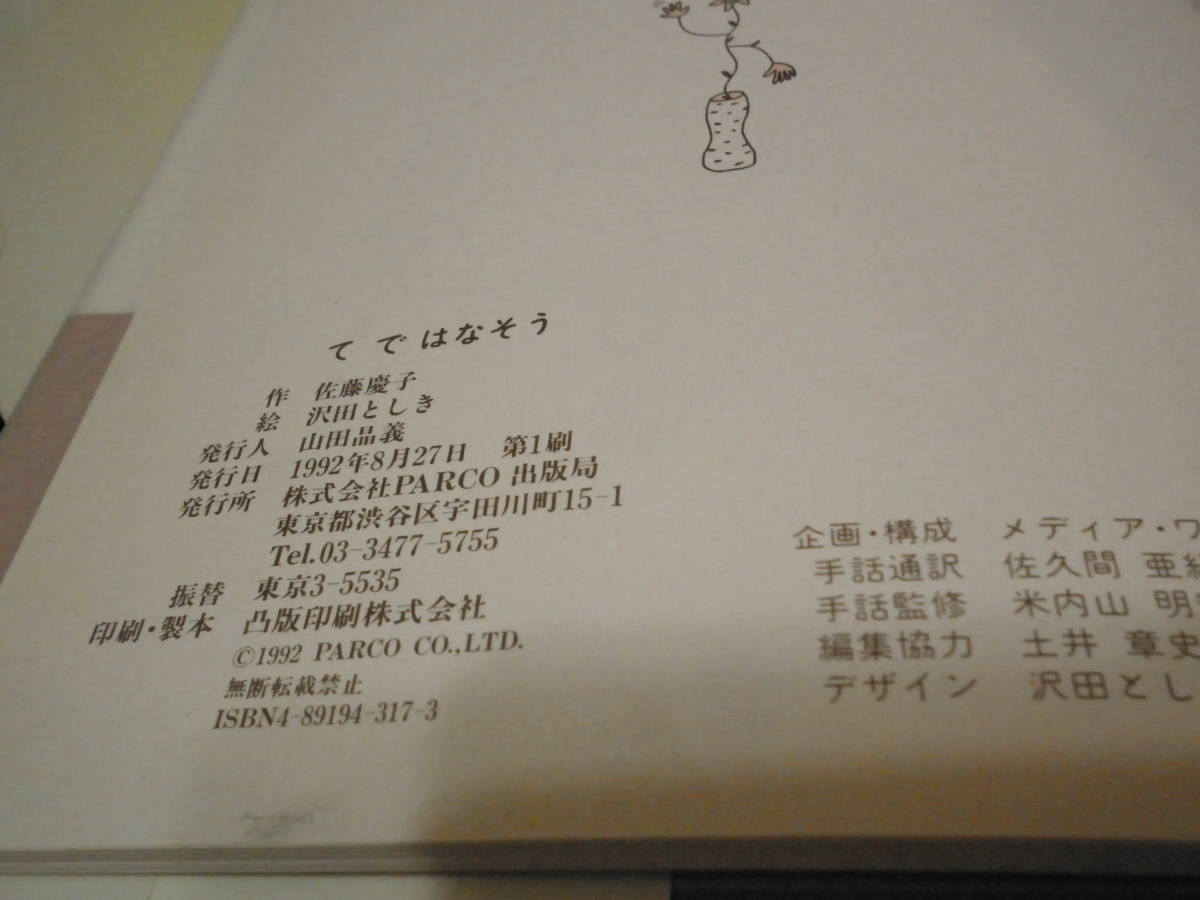 てではなそう
作 佐藤慶子
絵 沢田としき
発行人 山田晶義
発行日 1992年8月27日 第1刷
発行所 株式会社PARCO出版局
東京都渋谷区宇田川町15-1
Tel.03-3477-5755
振替 東京3-5535
印刷・製本 凸版印刷株式会社
©1992 PARCO CO.,LTD.
無断転載禁止
ISBN4-89194-317-3
企画・構成 メディア・ワ
手話通訳 佐久間 亜紀
手話監修 米内山 明
編集協力 土井 章史
デザイン 沢田とし